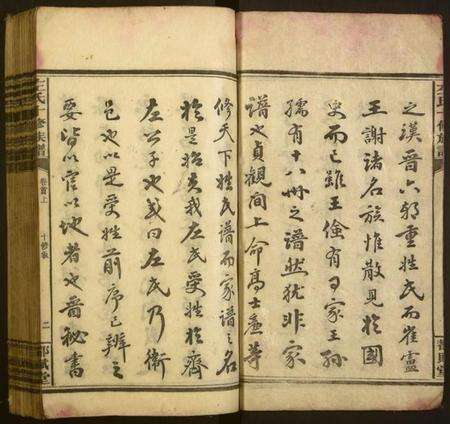 之漢晋六朝重姓氏而崔盧
王謝諸名族惟散見於國
史而已雖王儉有百家王孫
孺有十八州之譜然猶非家
譜也貞觀間上命高士廉等
修天下姓氏譜而家譜之名
於是始矣我左氏受姓於齊
左公子也或曰左氏乃衛
邑也以是受姓前序已辨之
要皆以官以地者也晋秘書
左氏 修族譜
卷首上
二
都賦堂